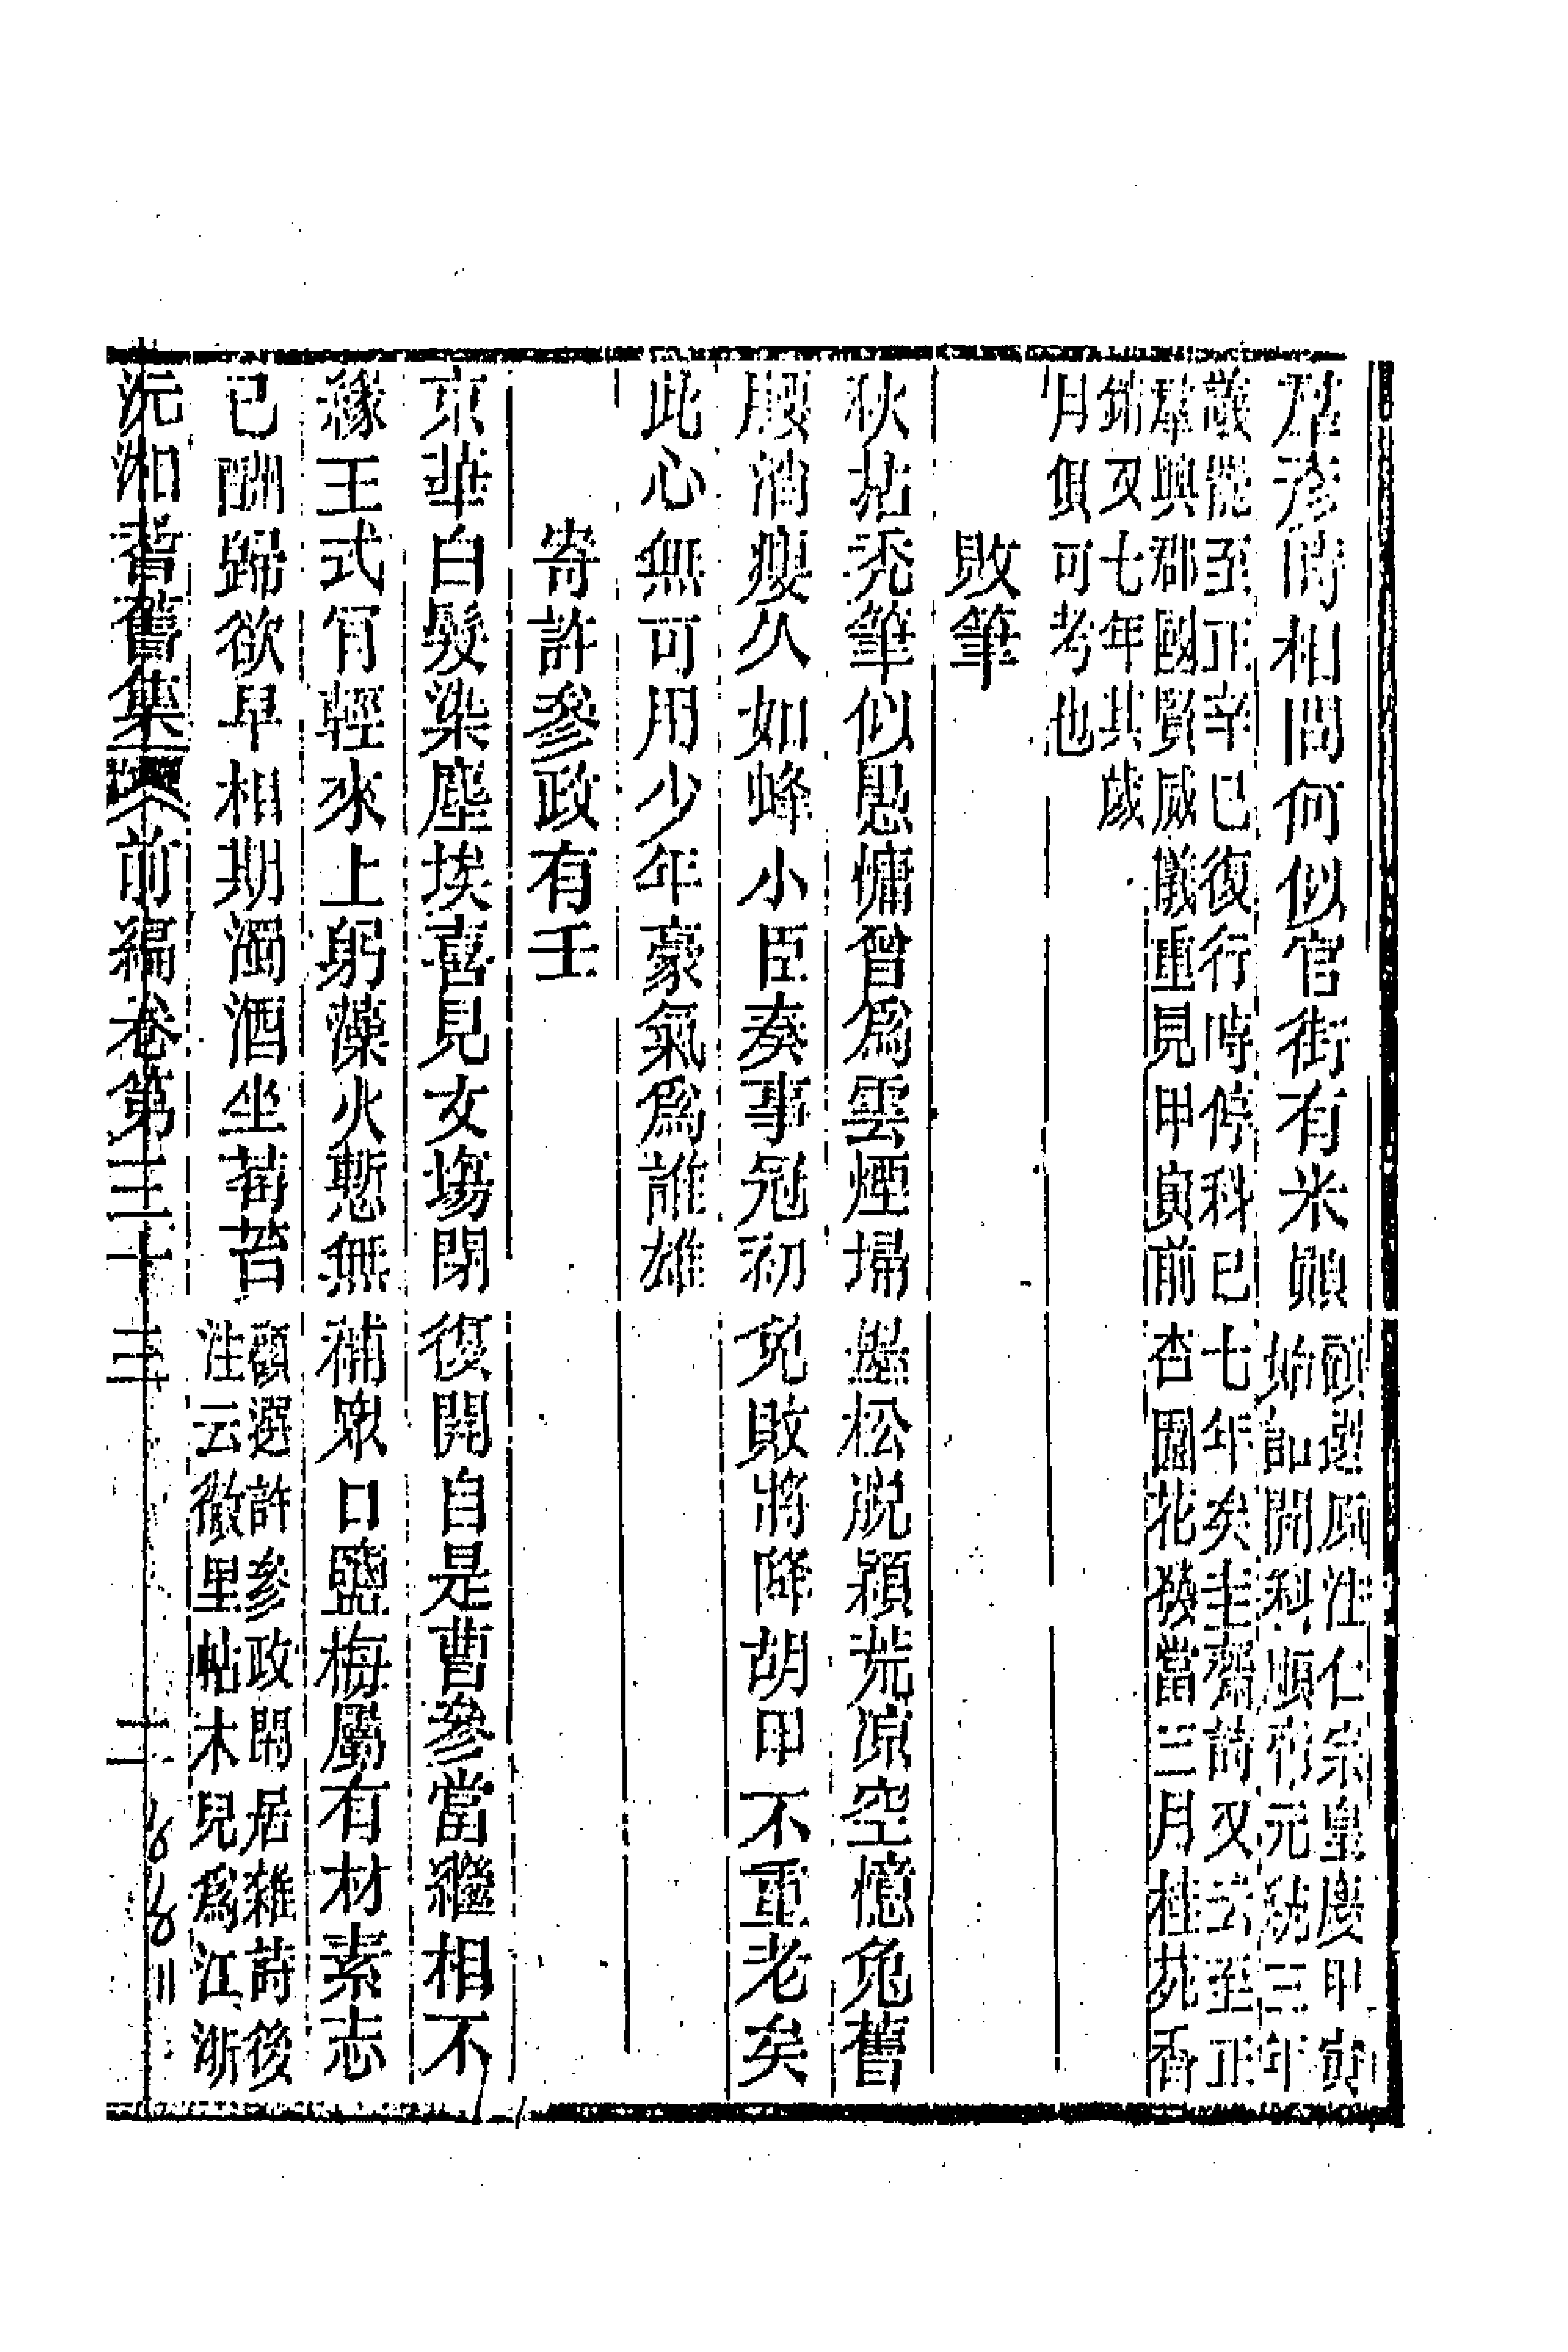 羣彥時相問何似官街有米顛
顧選原注仁宗皇慶甲寅
始詔開科順帝元統三年
議罷至正辛巳復行時停科已七年矣圭齋詩又云至正
羣興郡國賢威儀重見甲寅前杏園花發當三月桂苑香
銷又七年其歲
月俱可考也
敗筆
秋拈禿筆似愚慵曾爲雲煙埽墨松脱穎荒凉空憶兔舊
腰消瘦久如蜂小臣奏事冠初免敗將降胡甲不重老矣
此心無可用少年豪氣爲誰雄
寄許參政有壬
京華白髮染塵埃喜見女場閉復開自是曹參當繼相不
緣王式肯輕來上躬藻火慙無補眾口鹽梅屬有材素志
已酬歸欲早相期濁酒坐莓苔
顧選許參政閒居雜詩後
注云徹里帖木兒爲江浙
沅湘耆舊集前編卷第三十三 二